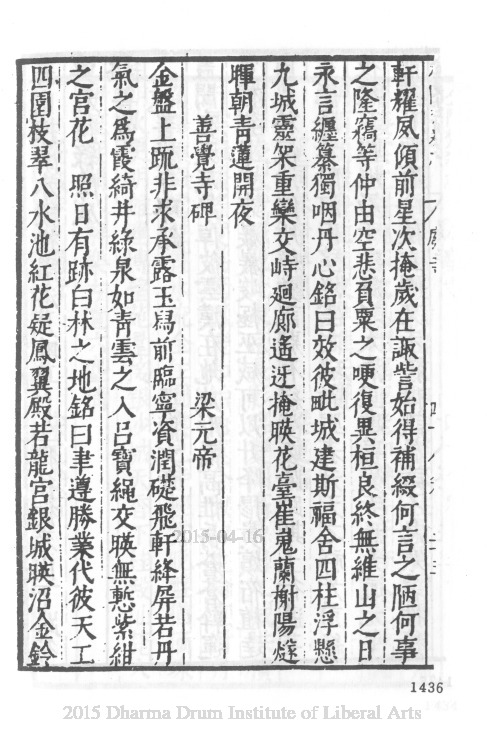 軒耀夙傾前星次掩歲在諏訾始得補綴何言之陋何事
之隆竊等仲由空悲負粟之哽復異桓良終無維山之日
永言纏篆獨咽丹心銘曰效彼毗城建斯福舍四柱浮懸
九城靈架重欒交峙廻廊遙迓掩暎花臺崔嵬蘭榭陽燧
暉朝青蓮開夜
善覺寺碑 梁元帝
金盤上䟽非求承露玉舄前臨寧資潤礎飛軒絳屏若丹
氣之爲霞綺井綠泉如青雲之入呂寶繩交暎無慙紫紺
之宮花 照日有跡白林之地銘曰聿遵勝業代彼天工
四園枝翠八水池紅花疑鳳翼殿若龍宮銀城暎沼金鈴
1436
2015-04-16
2015 Dharma Drum Institute of Liberal Arts